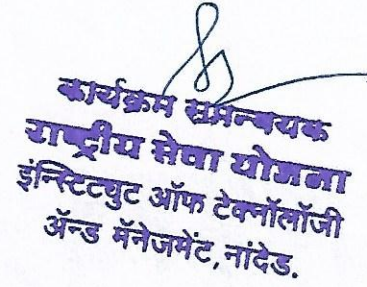 कार्यक्रम समन्वयक
राष्ट्रीय सेवा योजना
इंन्स्टिटयुट ऑफ टेक्नॉलॉजी
ॲन्ड मॅनेजमेंट, नांदेड.